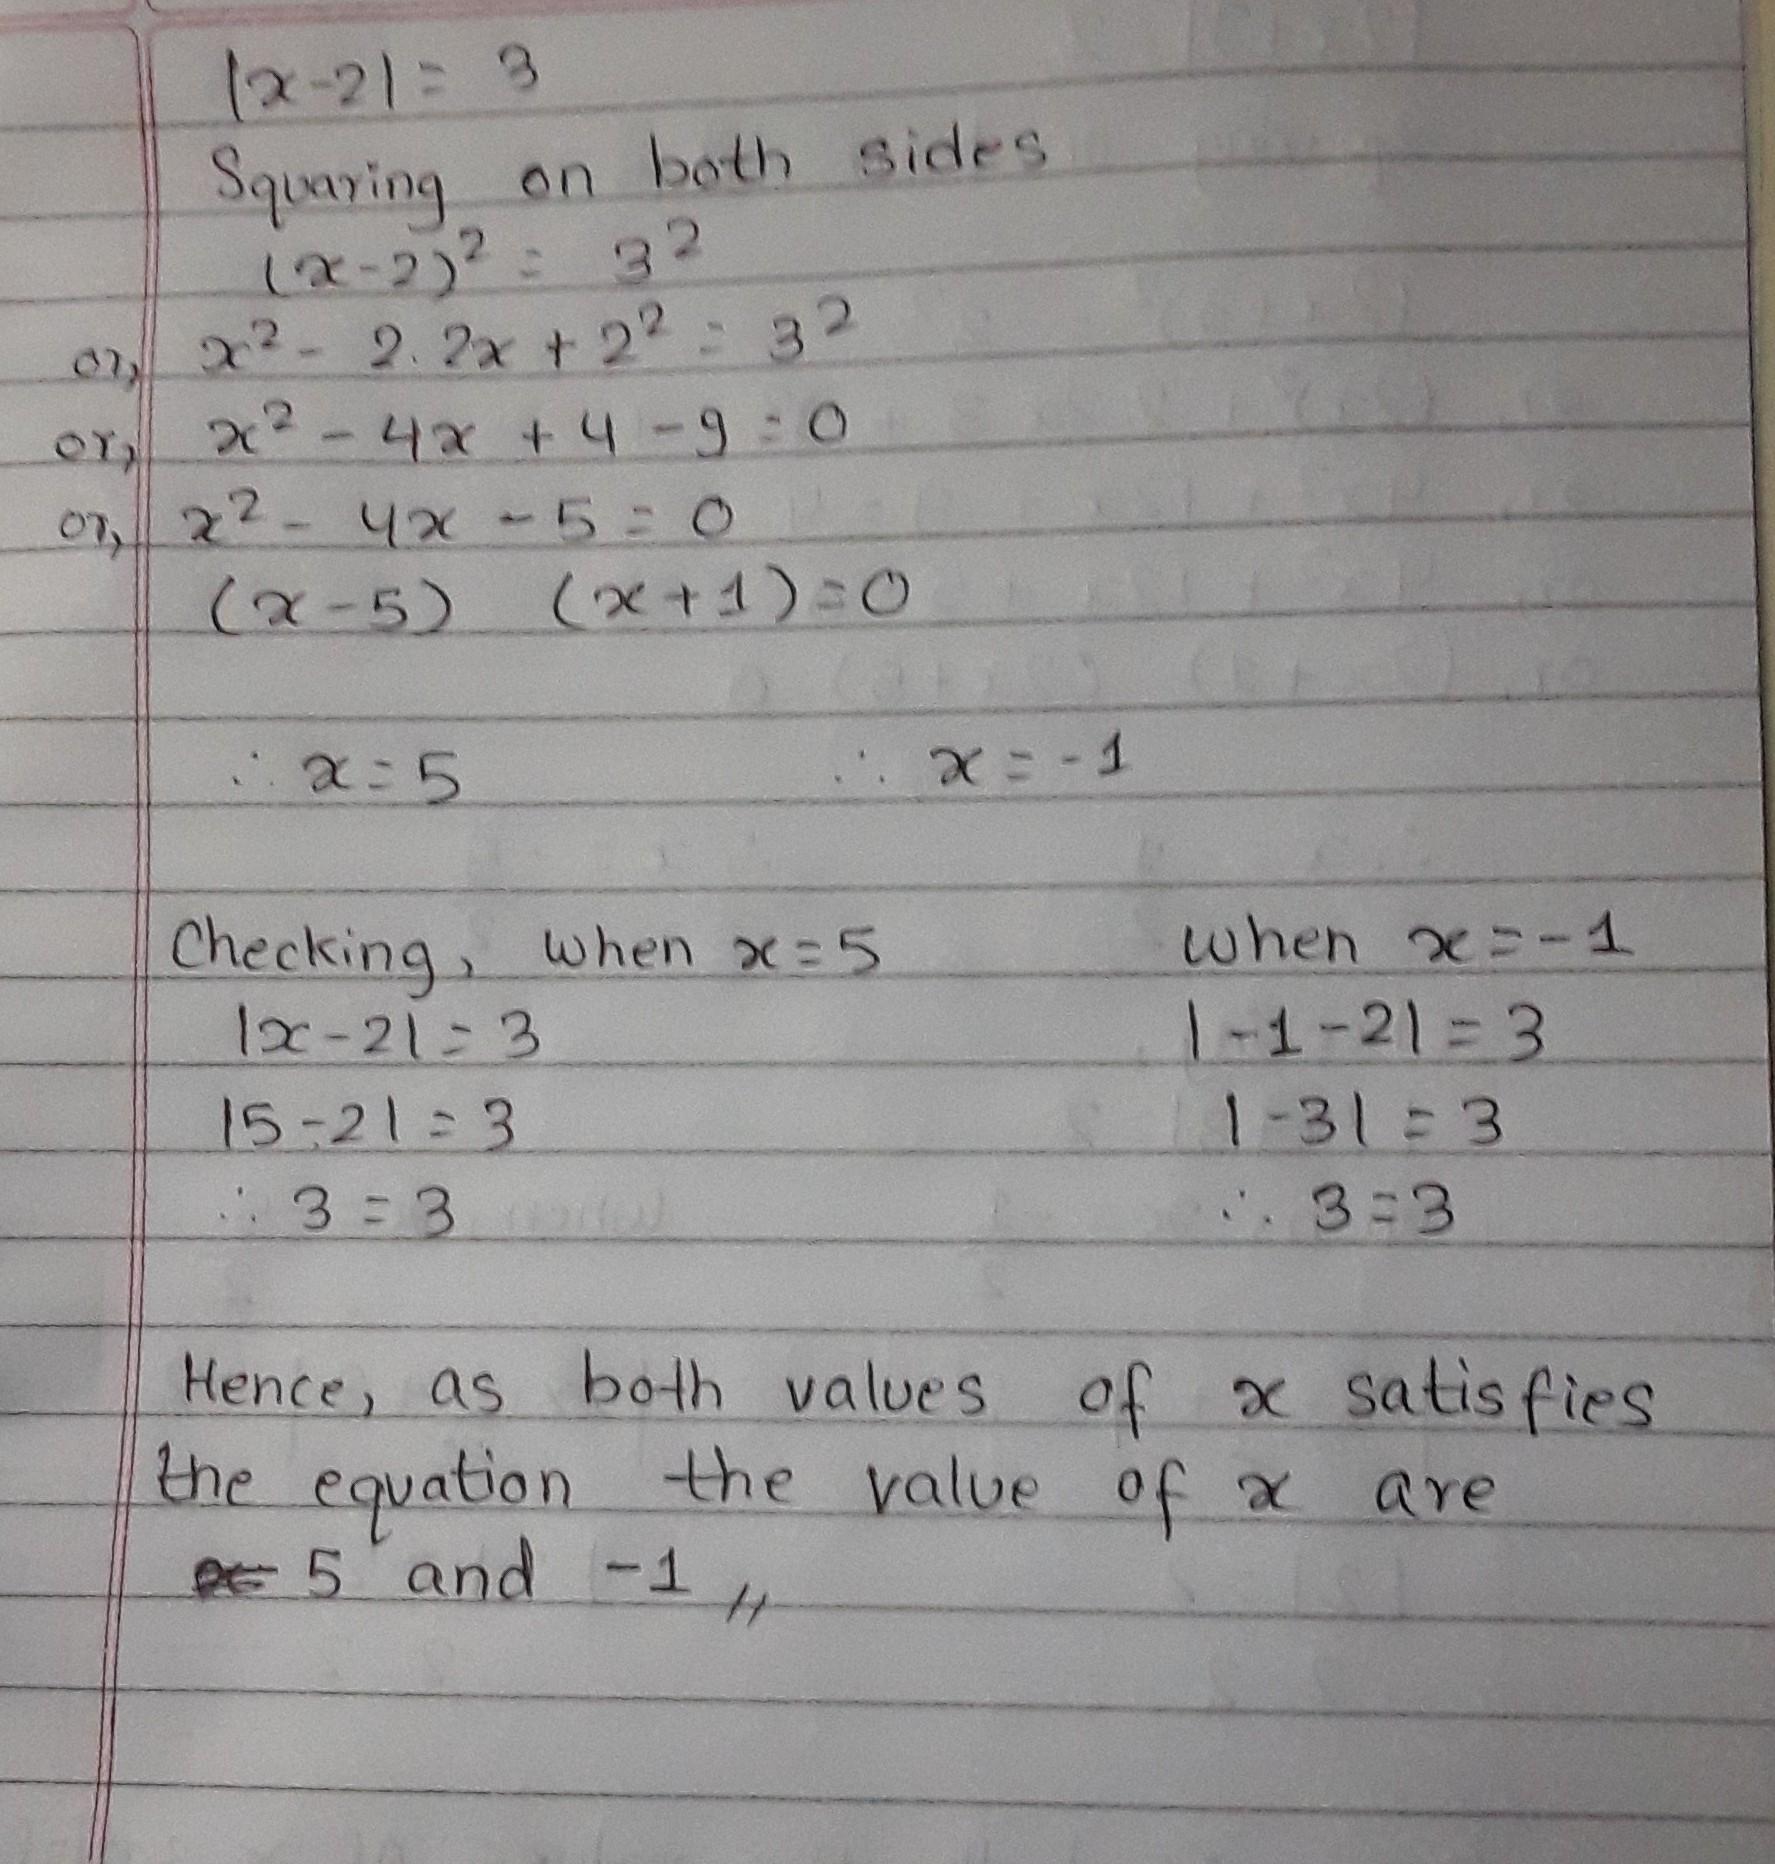 |x-2| = 3
Squaring on both sides
(x-2)² = 3²
or, x² - 2.2x + 2² = 3²
or, x² - 4x + 4 - 9 = 0
or, x² - 4x - 5 = 0
(x-5) (x+1) = 0
∴ x = 5 ∴ x = -1
Checking, when x = 5 when x = -1
|x-2| = 3 |-1-2| = 3
|5-2| = 3 |-3| = 3
∴ 3 = 3 ∴ 3 = 3
Hence, as both values of x satisfies
the equation the value of x are
5 and -1 ,,